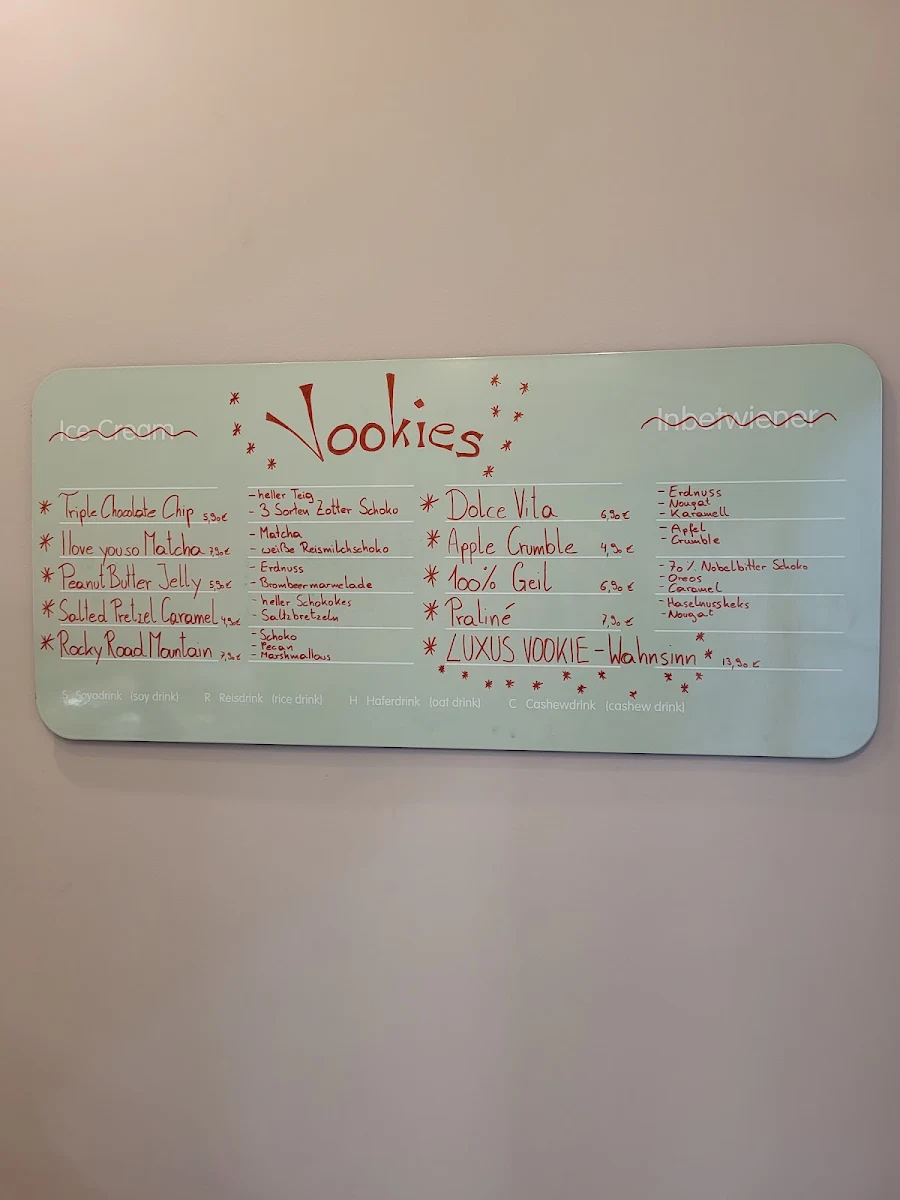 Ice Cream
Vookies
Inbetwiener
* Triple Chocolate Chip 5,90€
- heller Teig
- 3 Sorten Zotter Schoko
* I love you so Matcha 7,90€
- Matcha
- weiße Reismilchschoko
* Peanut Butter Jelly 5,90€
- Erdnuss
- Brombeermarmelade
* Salted Pretzel Caramel 4,90€
- heller Schokokes
- Saltzbretzeln
* Rocky Road Mountain 7,90€
- Schoko
- Pecan
- Marshmallows
* Dolce Vita 6,90€
- Erdnuss
- Nougat
- Karamell
* Apple Crumble 4,90 €
- Apfel
- Crumble
* 100% Geil 6,90 €
- 70% Nobelbitter Schoko
- Oreos
- Caramel
* Praliné 7,90 €
- Haselnusskeks
- Nougat
* LUXUS VOOKIE - Wahnsinn * 13,90 €
S Soyadrink (soy drink) R Reisdrink (rice drink) H Haferdrink (oat drink) C Cashewdrink (cashew drink)